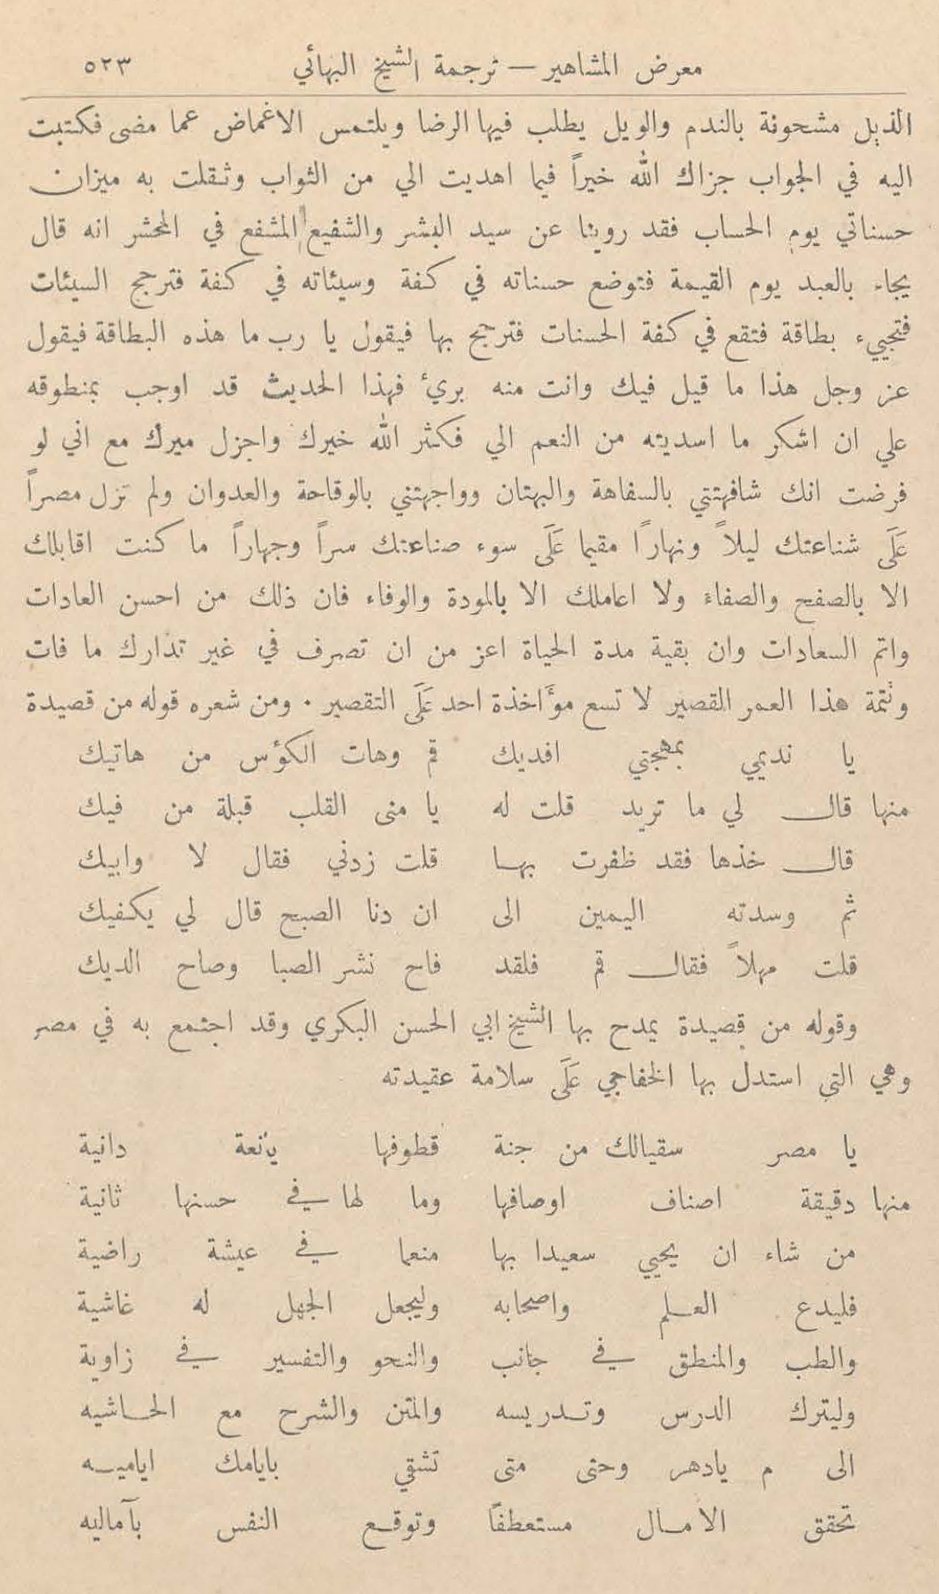 معرض المشاهير — ترجمة الشيخ البهائي ٥٢٣
الذيل مشحونة بالندم والويل يطلب فيها الرضا ويلتمس الاغماض عما مضى فكتبت
اليه في الجواب جزاك الله خيراً فيما اهديت الي من الثواب وثقلت به ميزان
حسناتي يوم الحساب فقد روينا عن سيد البشر والشفيع المشفع في المحشر انه قال
يجاء بالعبد يوم القيمة فتوضع حسناته في كفة وسيئاته في كفة فترجح السيئات
فتجييء بطاقة فتقع في كفة الحسنات فترجح بها فيقول يا رب ما هذه البطاقة فيقول
عز وجل هذا ما قيل فيك وانت منه بريء فهذا الحديث قد اوجب بمنطوقه
علي ان اشكر ما اسديته من النعم الي فكثر الله خيرك واجزل ميرك مع اني لو
فرضت انك شافهتني بالسفاهة والبهتان وواجهتني بالوقاحة والعدوان ولم تزل مصراً
عَلَى شناعتك ليلاً ونهاراً مقيما عَلَى سوء صناعتك سراً وجهاراً ما كنت اقابلك
الا بالصفح والصفاء ولا اعاملك الا بالمودة والوفاء فان ذلك من احسن العادات
واتم السعادات وان بقية مدة الحياة اعز من ان تصرف في غير تدارك ما فات
وتتمة هذا العمر القصير لا تسع مؤاخذة احد عَلَى التقصير . ومن شعره قوله من قصيدة
يا نديمي بمهجتي افديك قم وهات الكؤس من هاتيك
منها قال لي ما تريد قلت له يا منى القلب قبلة من فيك
قال خذها فقد ظفرت بها قلت زدني فقال لا وابيك
ثم وسدته اليمين الى ان دنا الصبح قال لي يكفيك
قلت مهلاً فقال قم فلقد فاح نشر الصبا وصاح الديك
وقوله من قصيدة يمدح بها الشيخ ابي الحسن البكري وقد اجتمع به في مصر
وهي التي استدل بها الخفاجي عَلَى سلامة عقيدته
يا مصر سقيالك من جنة قطوفها يانعة دانية
منها دقيقة اصناف اوصافها وما لها في حسنها ثانية
من شاء ان يحيي سعيدا بها منعما في عيشة راضية
فليدع العلم واصحابه وليجعل الجهل له غاشية
والطب والمنطق في جانب والنحو والتفسير في زاوية
وليترك الدرس وتدريسه والمتن والشرح مع الحاشيه
الى م يادهر وحتى متى تشقي بايامك ايامیه
تحقق الامال مستعطفاً وتوقع النفس بآماليه